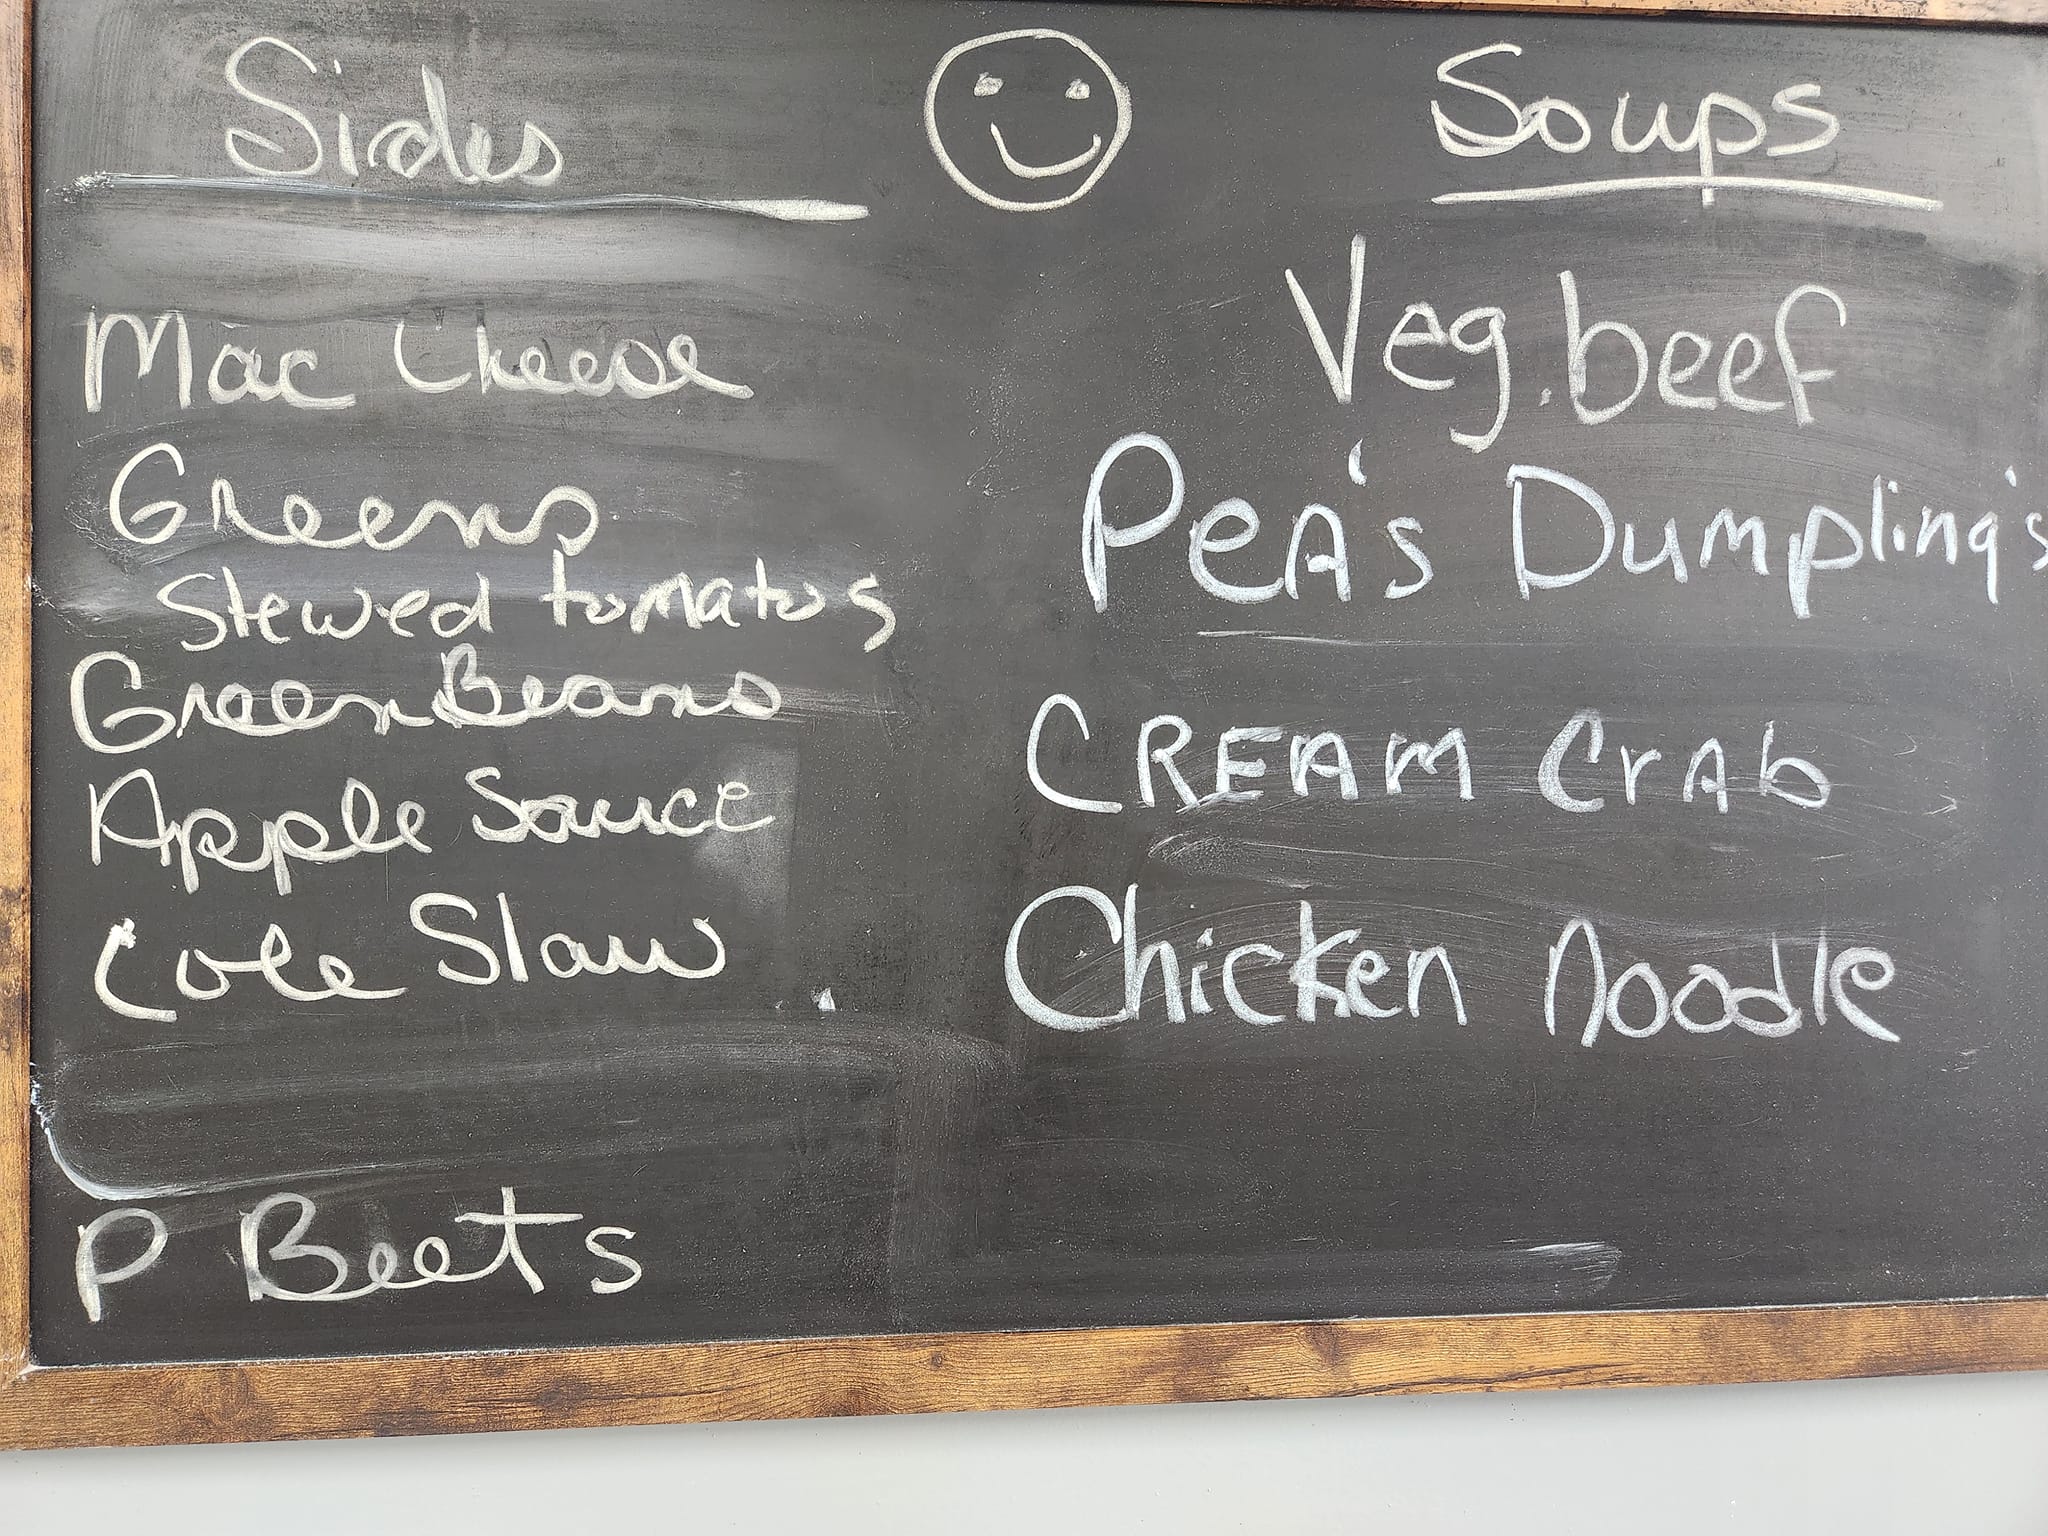 Sides
Mac Cheese
Greens
Stewed tomatos
Green Beans
Apple Sauce
Cole Slaw
P Beets
Soups
Veg. beef
Pea's Dumpling's
CREAM CrAb
Chicken Noodle